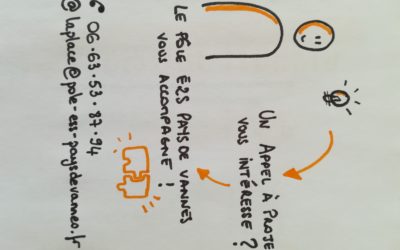 UN APPEL À PROJE
VOUS INTÉRESSE ?
LE PÔLE E2S PAYS DE VANNES
VOUS ACCOMPAGNE !
06.63.53.87.94
@ laplace@pole-ess-paysdevannes.fr